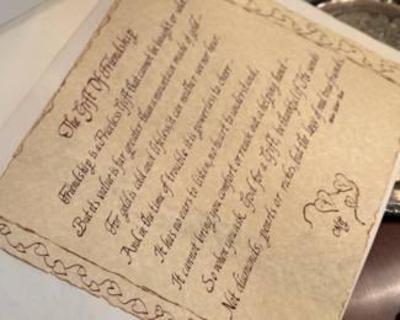 The Gift Of Friendship
Friendship is a Priceless Gift that cannot be bought or sold
But its value is far greater than a mountain made of gold..
For gold is cold and lifeless, it can neither see nor hear,
And in the time of trouble it is powerless to cheer -
It has no ears to listen, no heart to understand,
It cannot bring you comfort or reach out a helping hand -
So when you ask God for a Gift, be thankful if He sends
Not diamonds, pearls or riches, but the love of real true friends